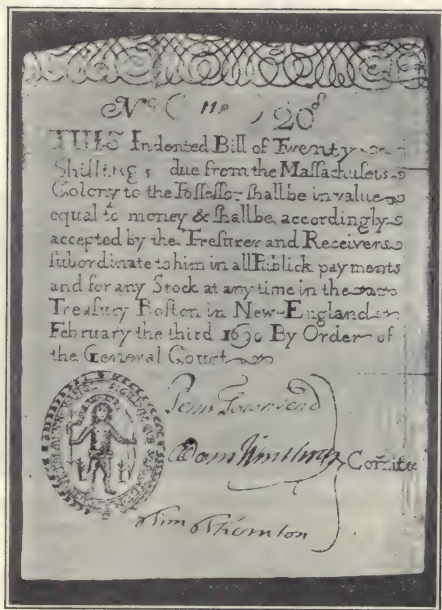 No 20s
THIS Indented Bill of Twenty
Shillings due from the Massachusets
Colony to the Possessor shall be in value
equal to money & shall be accordingly
accepted by the Tresurer and Receivers
subordinate to him in all Publick payments
and for any Stock at any time in the
Treasury Boston in New-England
February the third 1690 By Order of
the General Court
Penn Townsend
Adam Winthrop Comitee
Tim Thornton